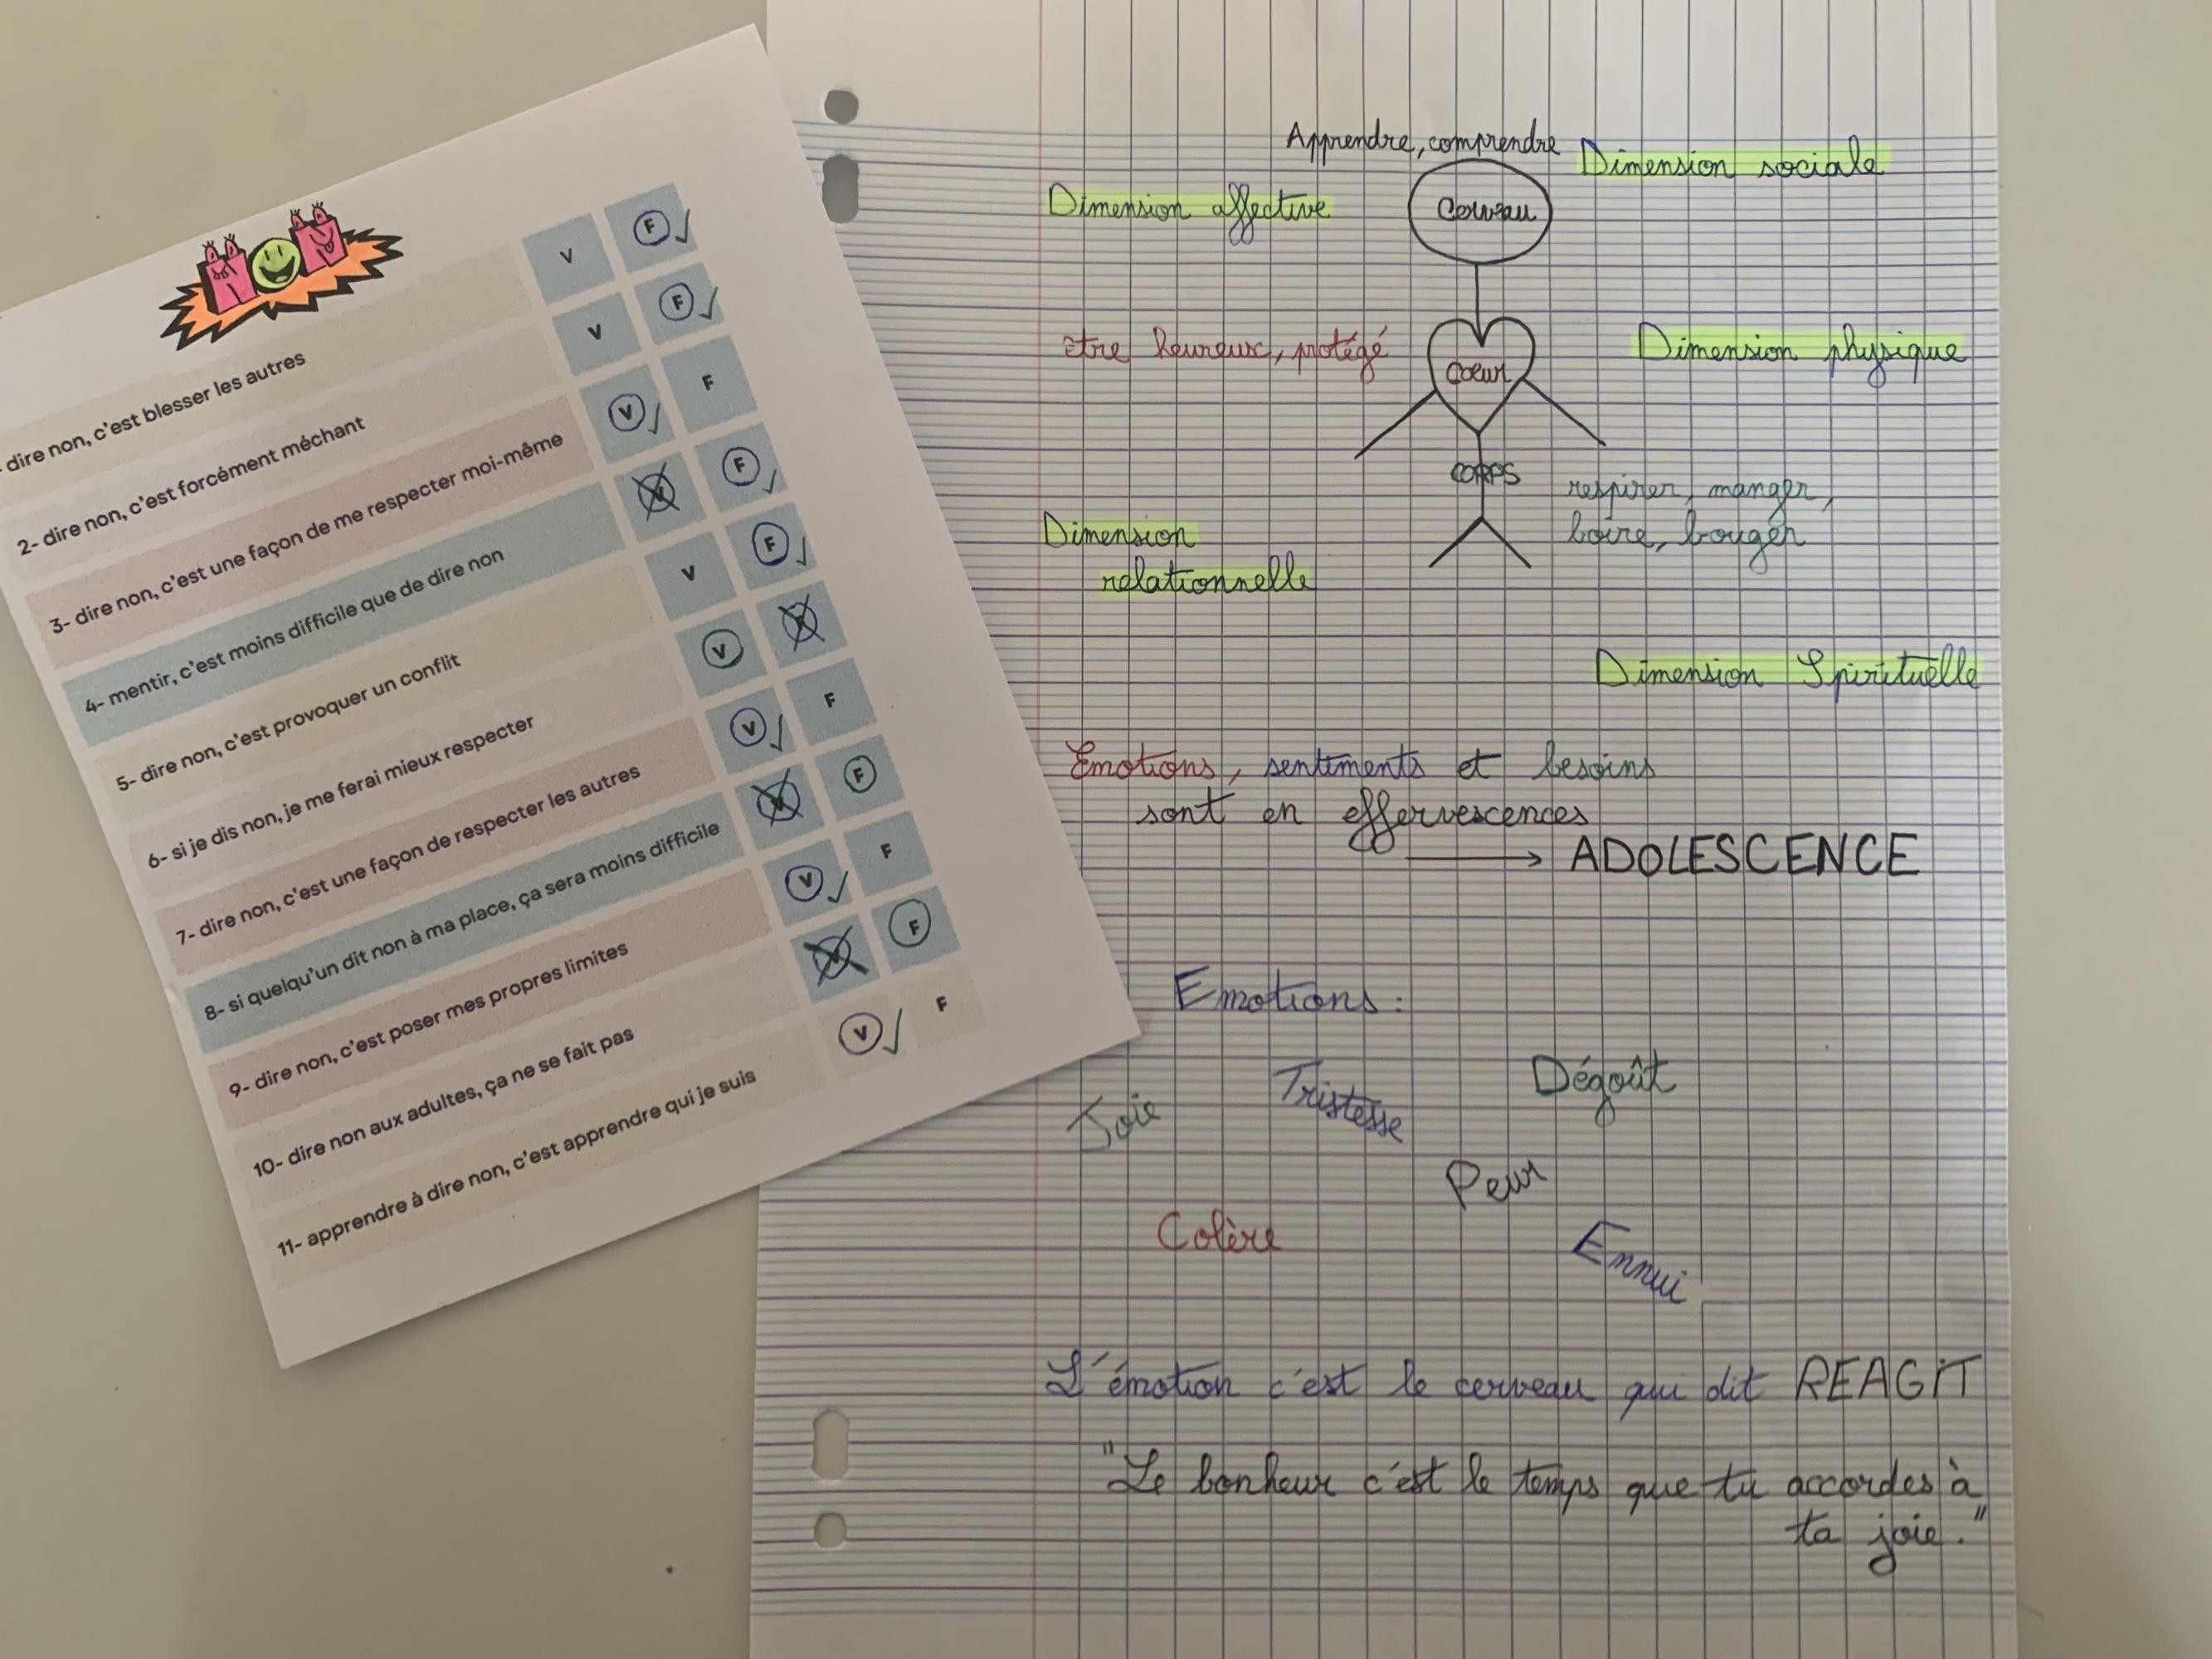 NON
dire non, c'est blesser les autres V F
2- dire non, c'est forcément méchant V F
3- dire non, c'est une façon de me respecter moi-même V F
4- mentir, c'est moins difficile que de dire non V F
5- dire non, c'est provoquer un conflit V F
6- si je dis non, je me ferai mieux respecter V F
7- dire non, c'est une façon de respecter les autres V F
8- si quelqu'un dit non à ma place, ça sera moins difficile V F
9- dire non, c'est poser mes propres limites V F
10- dire non aux adultes, ça ne se fait pas V F
11- apprendre à dire non, c'est apprendre qui je suis V F
Apprendre, comprendre
Dimension sociale
Dimension affective
Cerveau
être heureux, protégé
Coeur
Dimension physique
CORPS
respirer, manger,
boire, bouger
Dimension
relationnelle
Dimension Spirituelle
Emotions, sentiments et besoins
sont en effervescences
→ ADOLESCENCE
Emotions :
Joie
Tristesse
Dégoût
Peur
Colère
Ennui
L'émotion c'est le cerveau qui dit REAGIT
"Le bonheur c'est le temps que tu accordes à
ta joie."